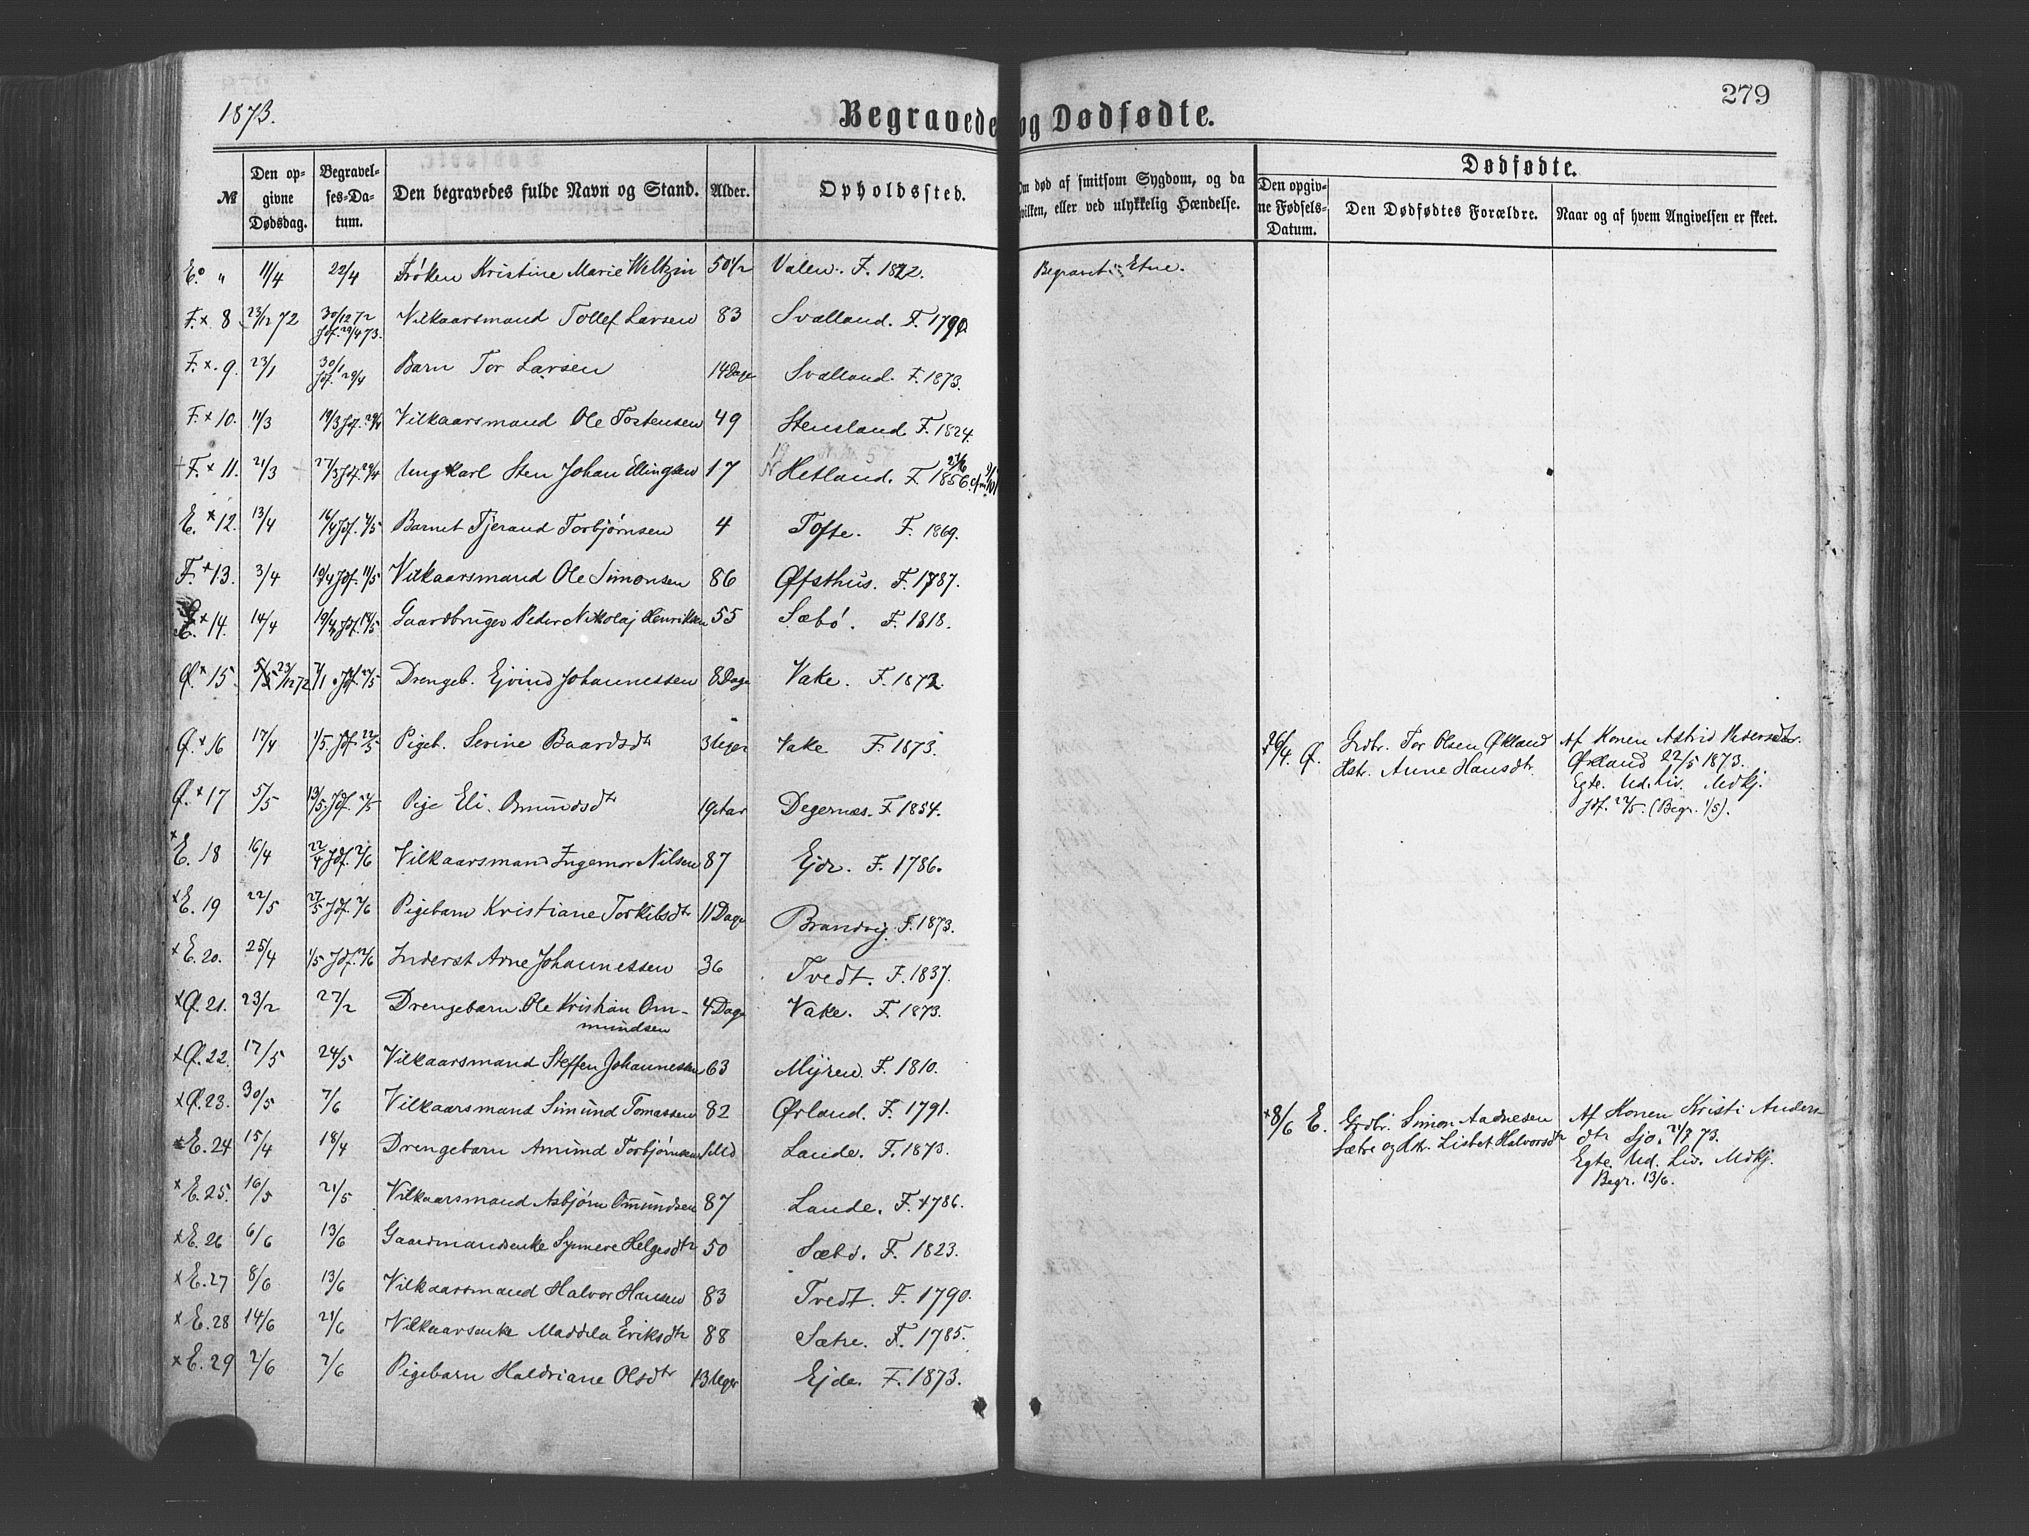 1873.
Begravede og Dødfødte.
279
№
Den opgivne Dødsdag.
Begravelses-Datum.
Den begravedes fulde Navn og Stand.
Alder.
Opholdssted.
Om død af smitsom Sygdom, og da hvilken, eller ved ulykkelig Hændelse.
Dødfødte.
Den opgivne Fødsels-Datum.
Den Dødfødtes Forældre.
Naar og af hvem Angivelsen er skeet.
E. " 11/4 22/4 Frøken Kristine Marie Weltzin 50 1/2 Valen. F. 1822. Begravet i Etne.
F. x 8 23/12 72 30/12 72 Jdf. 29/4 73. Vilkaarsmand Tollef Larsen 83 Svalland. F. 1790
F. x. 9. 23/1 30/1 Jdf. 29/4 Barn Tor Larsen 14 Dage Svalland. F. 1873.
F. x 10. 11/3 19/3 Jdf. 29/4 Vilkaarsmand Ole Tostensen 49 Stensland F. 1824.
F. x 11. 21/3 27/3 Jdf. 29/4 Ungkarl Sten Johan Ellingsen 17 Hetland. F. 1856.
E. x 12. 13/4 16/4 Jdf. 11/5 Barnet Tjerand Torbjørnsen 4 Tofte. F. 1869.
F. + 13. 3/4 10/4 Jdf. 11/5 Vilkaarsmand Ole Simonsen 86 Øfsthus. F. 1787.
E. x 14. 14/4 19/4 Jdf. 14/5 Gaardbruger Peder Nikolaj Henriksen 55 Sæbø. F. 1818.
Ø. x 15 23/12 72 7/1 Jdf. 22/5 Drengeb. Ejvind Johannessen 8 Dage Vake. F. 1872
Ø. + 16 17/4 1/5. Jdf. 22/5 Pigeb. Serine Baardsdtr 3 Uger Vake F. 1873.
26/4. Ø. Grdbr. Tor Olsen Økland Af Konen Astrid Pedersdtr.
Hstr. Anne Hansdtr. Økland 22/5 1873.
Egte. Ud. Liv. Mdkj.
Jdf. 22/5. (Begr. 1/5).
Ø. + 17 5/5 13/5. Jdf. 22/5 Pige Eli Omundsdtr 19 Aar Degernæs. F. 1854.
x E. 18 16/4 22/4 Jdf. 2/6 Vilkaarsmand Ingemor Nilsen 87 Ejde. F. 1786.
x E. 19 22/5 27/5 Jdf. 2/6 Pigebarn Kristiane Torkilsdtr 11 Dage Brandvig F. 1873.
x E. 20. 25/4 1/5 Jdf. 2/6 Inderst Arne Johannessen 36 Tvedt. F. 1837.
x Ø. 21. 23/2 27/2 Drengebarn Ole Kristian Ommundsen 4 Dage Vake. F. 1873.
x Ø. 22. 17/5 24/5 Vilkaarsmand Steffen Johannessen 63 Myren. F. 1810.
x Ø. 23. 30/5 7/6 Vilkaarsmand Simund Tomassen 82 Ørland. F. 1791.
x 8/6 E. Grdbr. Simon Aadnesen Af Konen Kristi Anders-
Sætre og Hstr. Lisbet Halvorsdtr dtr Sjo. 73.
Egte. Ud. Liv. Mdkj.
Begr. 13/6.
x E. 24 15/4 18/4 Drengebarn Amund Torbjørnsen Lande. F. 1873.
x E. 25. 16/5 21/5 Vilkaarsmand Asbjørn Omundsen 87 Lande. F. 1786.
x E. 26 6/6 13/6 Gaardmandsenke Synnøve Helgesdtr 50 Sæbø. F. 1823.
x E. 27 8/6 13/6 Vilkaarsmand Halvor Hansen 83 Tvedt. F. 1790.
x E. 28 14/6 21/6 Vilkaarsenke Maddela Eriksdtr 88 Sætre. F. 1785.
x E. 29 2/6 7/6 Pigebarn Haldriane Olsdtr 13 Uger Ejde. F. 1873.